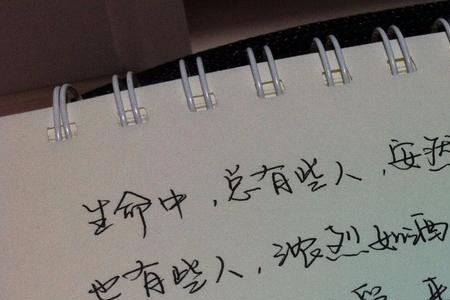 生命中，总有些人，安然
也有些人，浓烈如酒